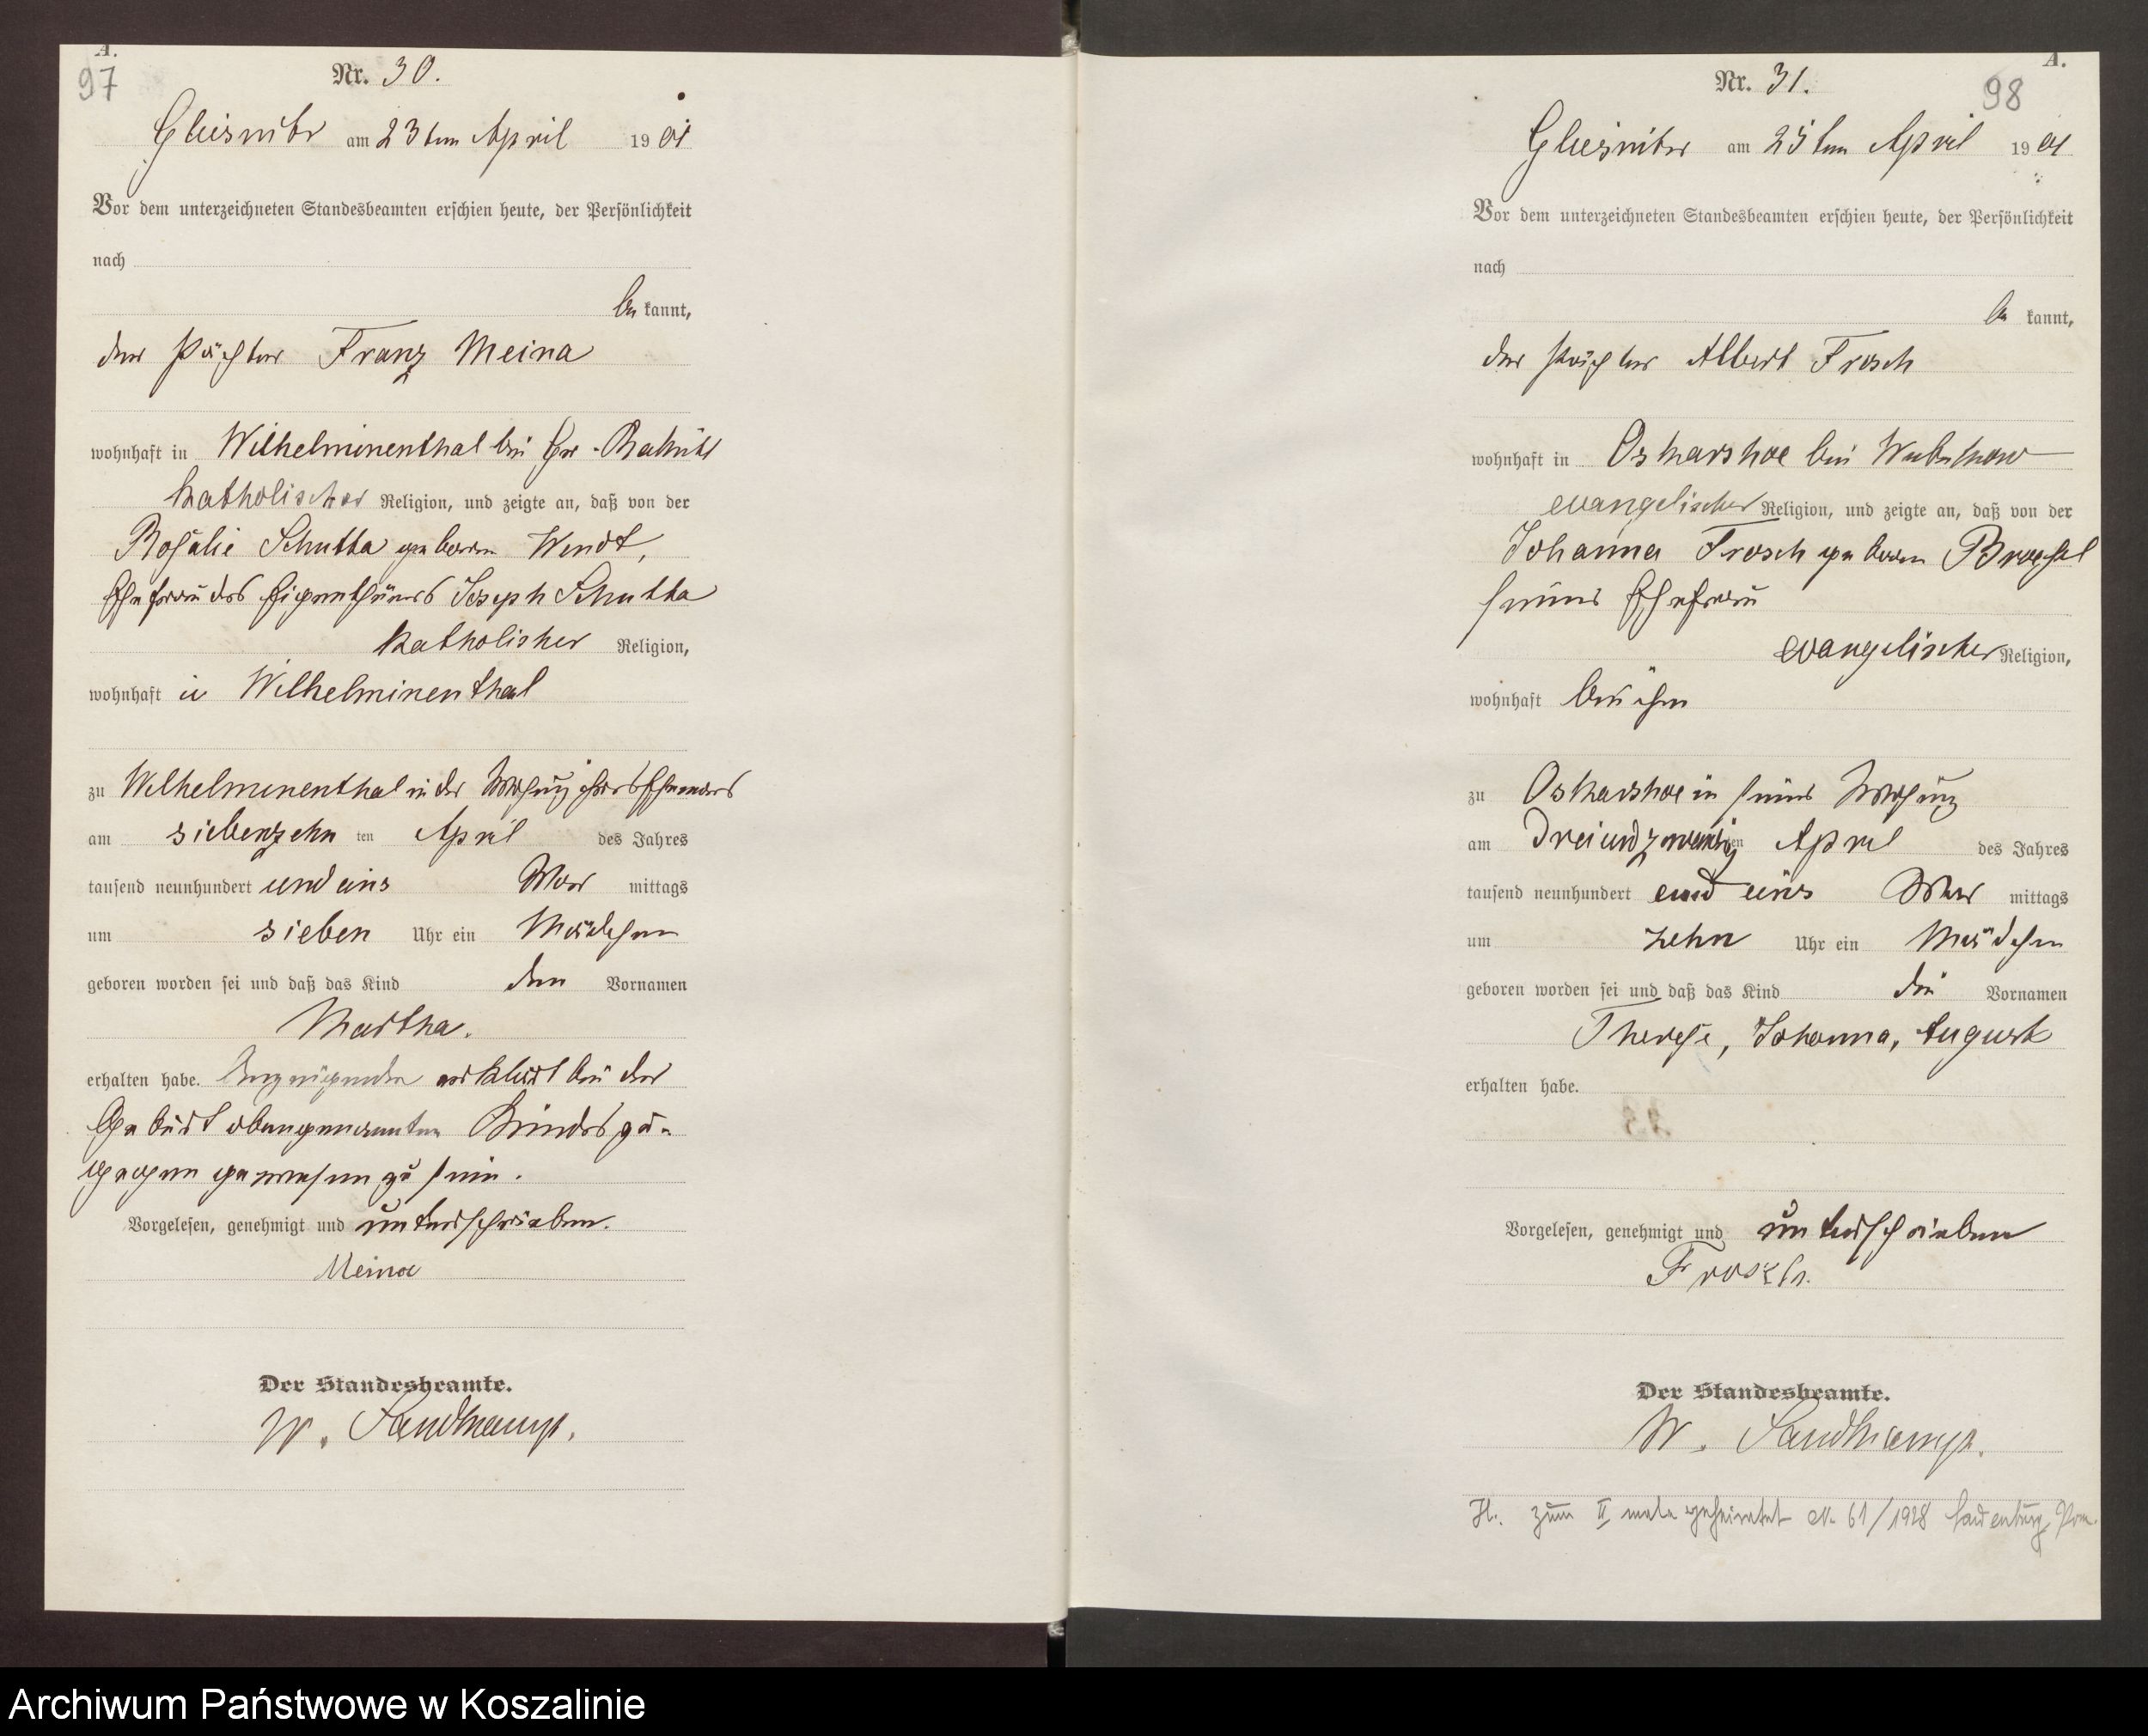 A.
97
Nr. 30.
Gliesnitz am 23ten April 1901
Vor dem unterzeichneten Standesbeamten erschien heute, der Persönlichkeit
nach
bekannt,
der Pächter Franz Meina
wohnhaft in Wilhelminenthal bei Gr.
katholischer Religion, und zeigte an, daß von der
Rosalie Schutta geboren Wendt,
Ehefrau des Eigenthümers Joseph Schutta
katholischer Religion,
wohnhaft in Wilhelminenthal
zu Wilhelminenthal in der Wohnung ihres Ehemannes
am siebenzehn ten April des Jahres
tausend neunhundert und eins Vor mittags
um sieben Uhr ein Mädchen
geboren worden sei und daß das Kind den Vornamen
Martha.
erhalten habe. Anzeigender erklärt bei der
Geburt obengenannten Kindes zu-
gegen gewesen zu sein.
Vorgelesen, genehmigt und unterschrieben.
Meina
Der Standesbeamte.
W. Sandkamp.
A.
98
Nr. 31.
Gliesnitz am 25ten April 1901
Vor dem unterzeichneten Standesbeamten erschien heute, der Persönlichkeit
nach
bekannt,
der Pächter Albert Frosch
wohnhaft in Oskarshoe bei
evangelischer Religion, und zeigte an, daß von der
Johanna Frosch geboren
seiner Ehefrau
evangelischer Religion,
wohnhaft bei ihm
zu Oskarshoe in seiner Wohnung
am Dreiundzwanzigten April des Jahres
tausend neunhundert und eins Vor mittags
um zehn Uhr ein Mädchen
geboren worden sei und daß das Kind die Vornamen
Therese, Johanna, August
erhalten habe.
Vorgelesen, genehmigt und unterschrieben
Frosch.
Der Standesbeamte.
W. Sandkamp.
H. zum II male geheiratet N. 61/1928 Lauenburg, Pom.
Archiwum Państwowe w Koszalinie